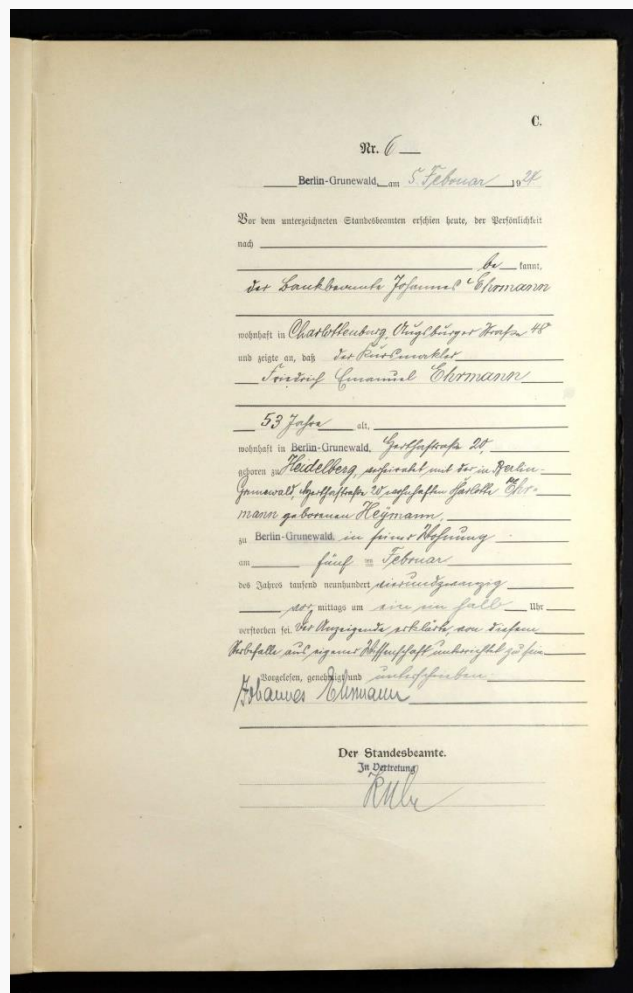 C.
Nr. 6
Berlin-Grunewald, am 5. Februar 1924
Vor dem unterzeichneten Standesbeamten erschien heute, der Persönlichkeit
nach
be kannt,
der Bankbeamte Johannes Ehrmann
wohnhaft in Charlottenburg, Augsburger Straße 48
und zeigte an, daß der Kursmakler
Friedrich Emanuel Ehrmann
53 Jahre alt,
wohnhaft in Berlin-Grunewald, Herthastraße 20,
geboren zu Heidelberg, verheiratet mit der in Berlin-
Grunewald, Herthastraße 20 wohnhaften Charlotte Ehr-
mann geborenen Heymann,
zu Berlin-Grunewald, in seiner Wohnung
am fünf ten Februar
des Jahres tausend neunhundert vierundzwanzig
vor mittags um ein ein halb Uhr
verstorben sei. Der Anzeigende erklärte, von diesem
Sterbefalle aus eigener Wissenschaft unterrichtet zu sein
Vorgelesen, genehmigt und unterschrieben
Johannes Ehrmann
Der Standesbeamte.
In Vertretung